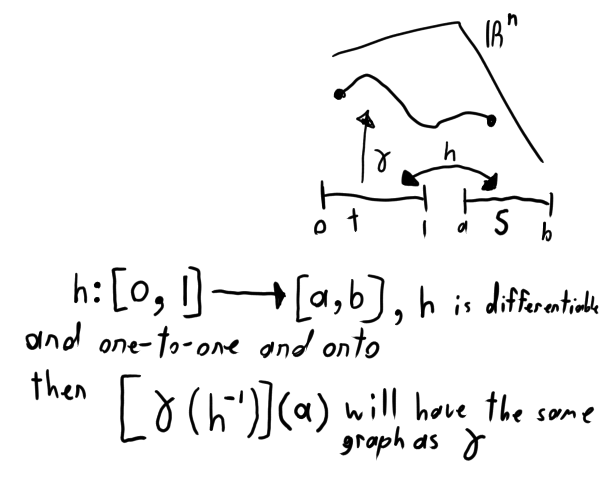 ℝⁿ
γ
h
0 t 1 a S b
h: [0, 1] → [a, b], h is differentiable
and one-to-one and onto
then [γ(h⁻¹)](a) will have the same
graph as γ